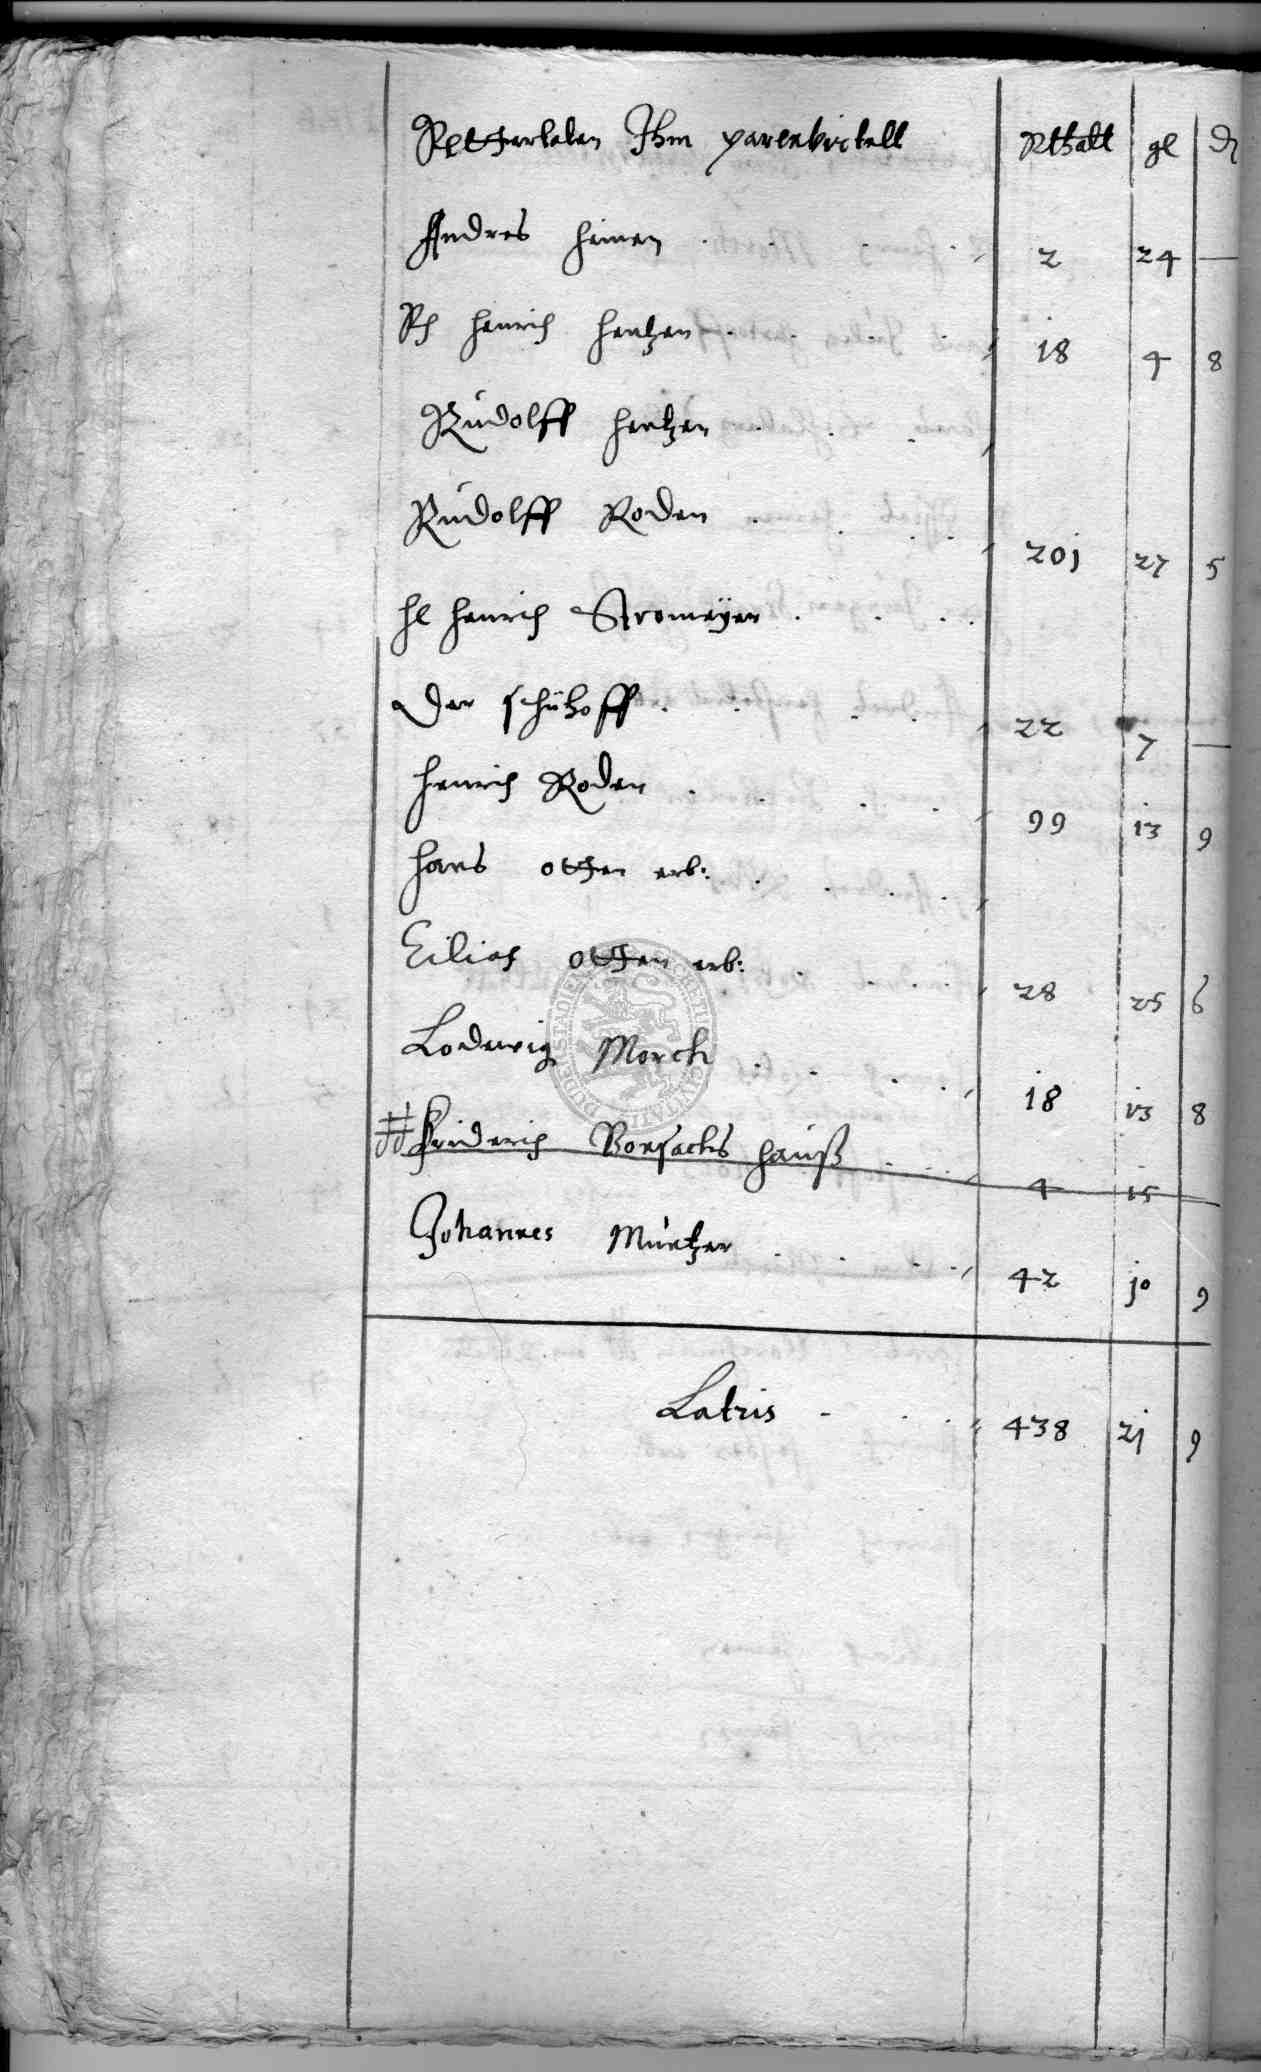 Rettterleben Ihm parlevirtell Rthall gl d
Andres heinen 2 24 —
Rh Henrich hentzen 18 4 8
Rudolff hentzen
Rudolff Roden 20j 27 5
hl Henrich Stromeÿer
der schühoff 22 7 —
Henrich Roden 99 i3 9
hans otthen erb:
Eilias otthen erb: 28 25 6
Lodewig Morch 18 i3 8
Friderich Borsacks hauß 4 i5
Johannes Müntzer 42 j0 9
Latris 438 2j 9